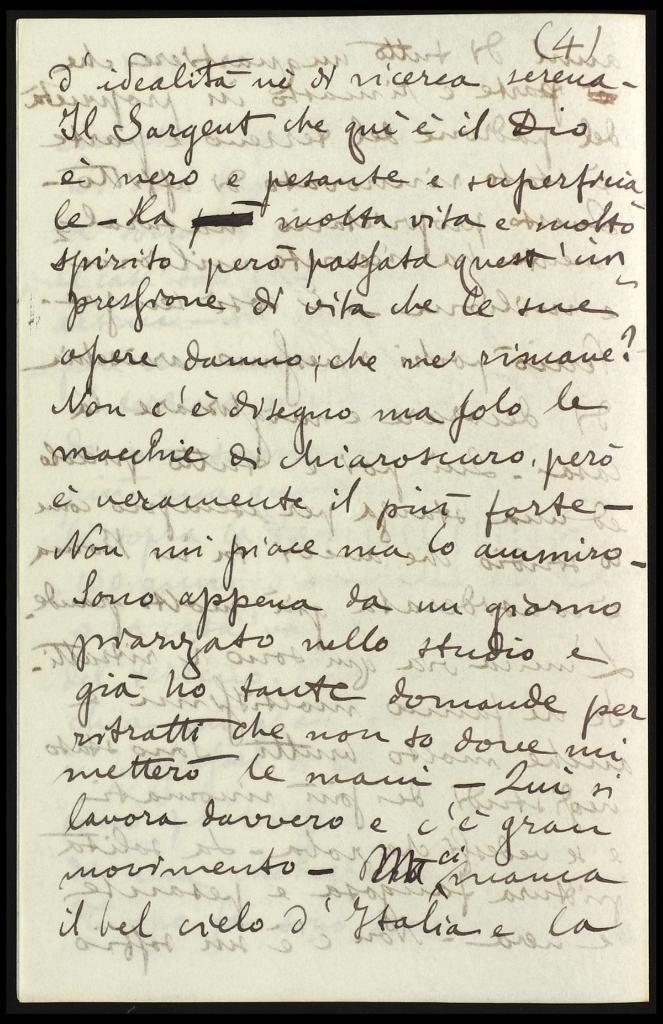 (4)
d'idealità nè di ricerca serena-
Il Sargent che qui è il Dio
è nero e pesante e superficia
le - Ha molta vita e molto
spirito però passata quest'im
pressione di vita che le sue
opere danno, che ne rimane?
Non c'è disegno ma solo le
macchie di chiaroscuro, però
è veramente il più forte -
Non mi piace ma lo ammiro -
Sono appena da un giorno
piazzato nello studio e
già ho tante domande per
ritratti che non so dove mi
metterò le mani - Qui si
lavora davvero e c'è gran
movimento - ci manca
il bel cielo d'Italia e la